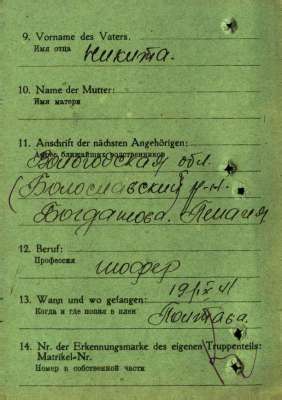 9. Vorname des Vaters.
Имя отца
Никита.
10. Name der Mutter:
Имя матери
11. Anschrift der nächsten Angehörigen:
Адрес ближайших родственников
Вологодская обл.
р-н.
Богдашова.
12. Beruf:
Профессия
шофер
19/IX 41
13. Wann und wo gefangen:
Когда и где попал в плен
Полтава.
14. Nr. der Erkennungsmarke des eigenen Truppenteils:
Matrikel-Nr.
Номер в собственной части